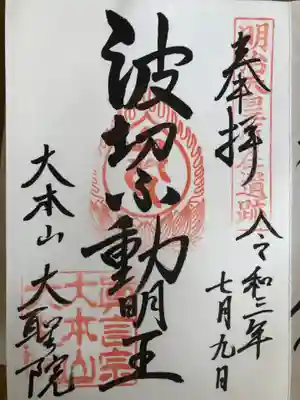 奉拝
令和三年
七月九日
波切不動明王
大本山 大聖院
真言宗
大本山